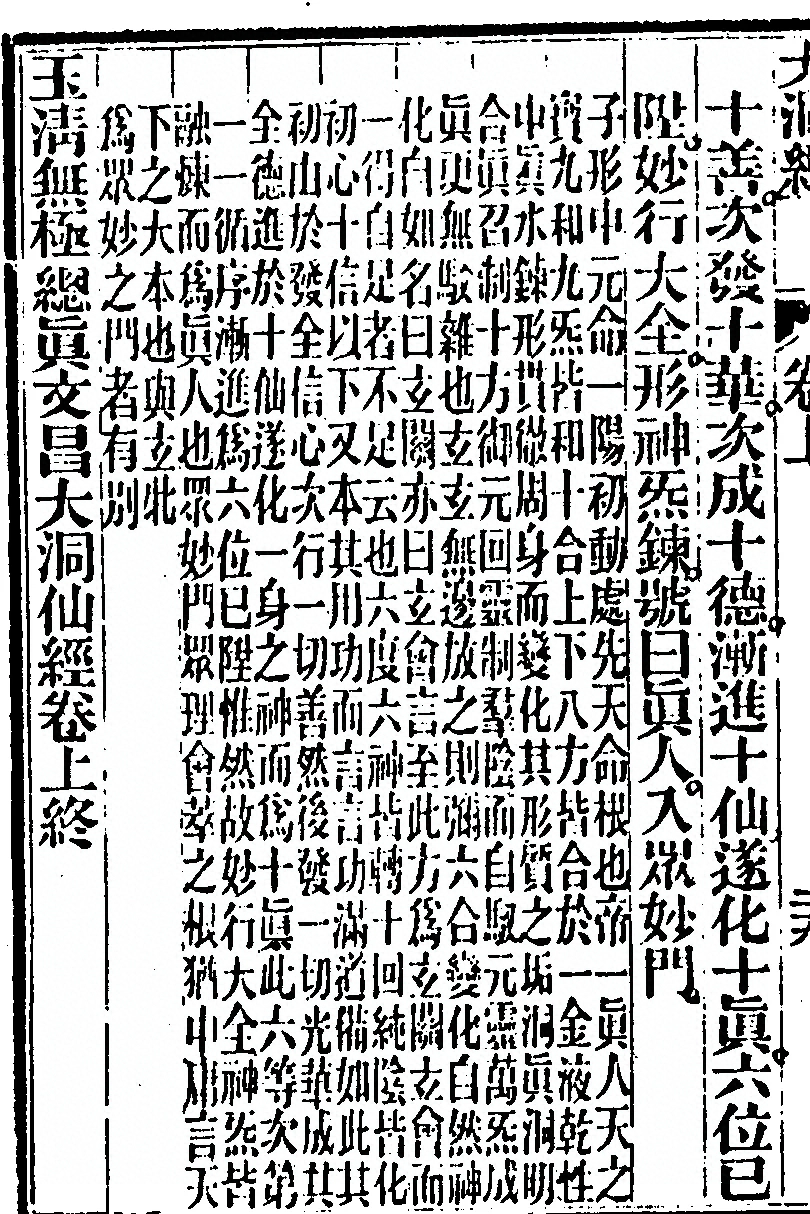 十善次發十華次成十德漸進十仙遂化十眞六位已
陞妙行大全形神炁鍊號曰眞人入眾妙門
子形中元命一陽初動處先天命根也帝一眞人天之
寶九和九炁皆和十合上下八方皆合於一金液乾性
中眞水鍊形貫徹周身而變化其形質之垢洞眞洞明
合眞召制十方御元回靈制羣陰而自馭元靈萬炁成
眞更無駁雜也玄玄無邊放之則彌六合變化自然神
化自如名曰玄關亦曰玄會言至此方爲玄關玄會而
一得自足者不足云也六度六神皆轉十回純陰皆化
初心十信以下又本其用功而言言功滿道備如此其
初山於發全信心次行一切善然後發一切光華成其
全德進於十仙遂化一身之神而爲十眞此六等次第
一一循序漸進爲六位已陞惟然故妙行大全神炁皆
融煉而爲眞人也眾妙門眾理會萃之根猶中庸言天
下之大本也與玄牝
爲眾妙之門者有別
玉淸無極總眞文昌大洞仙經卷上終